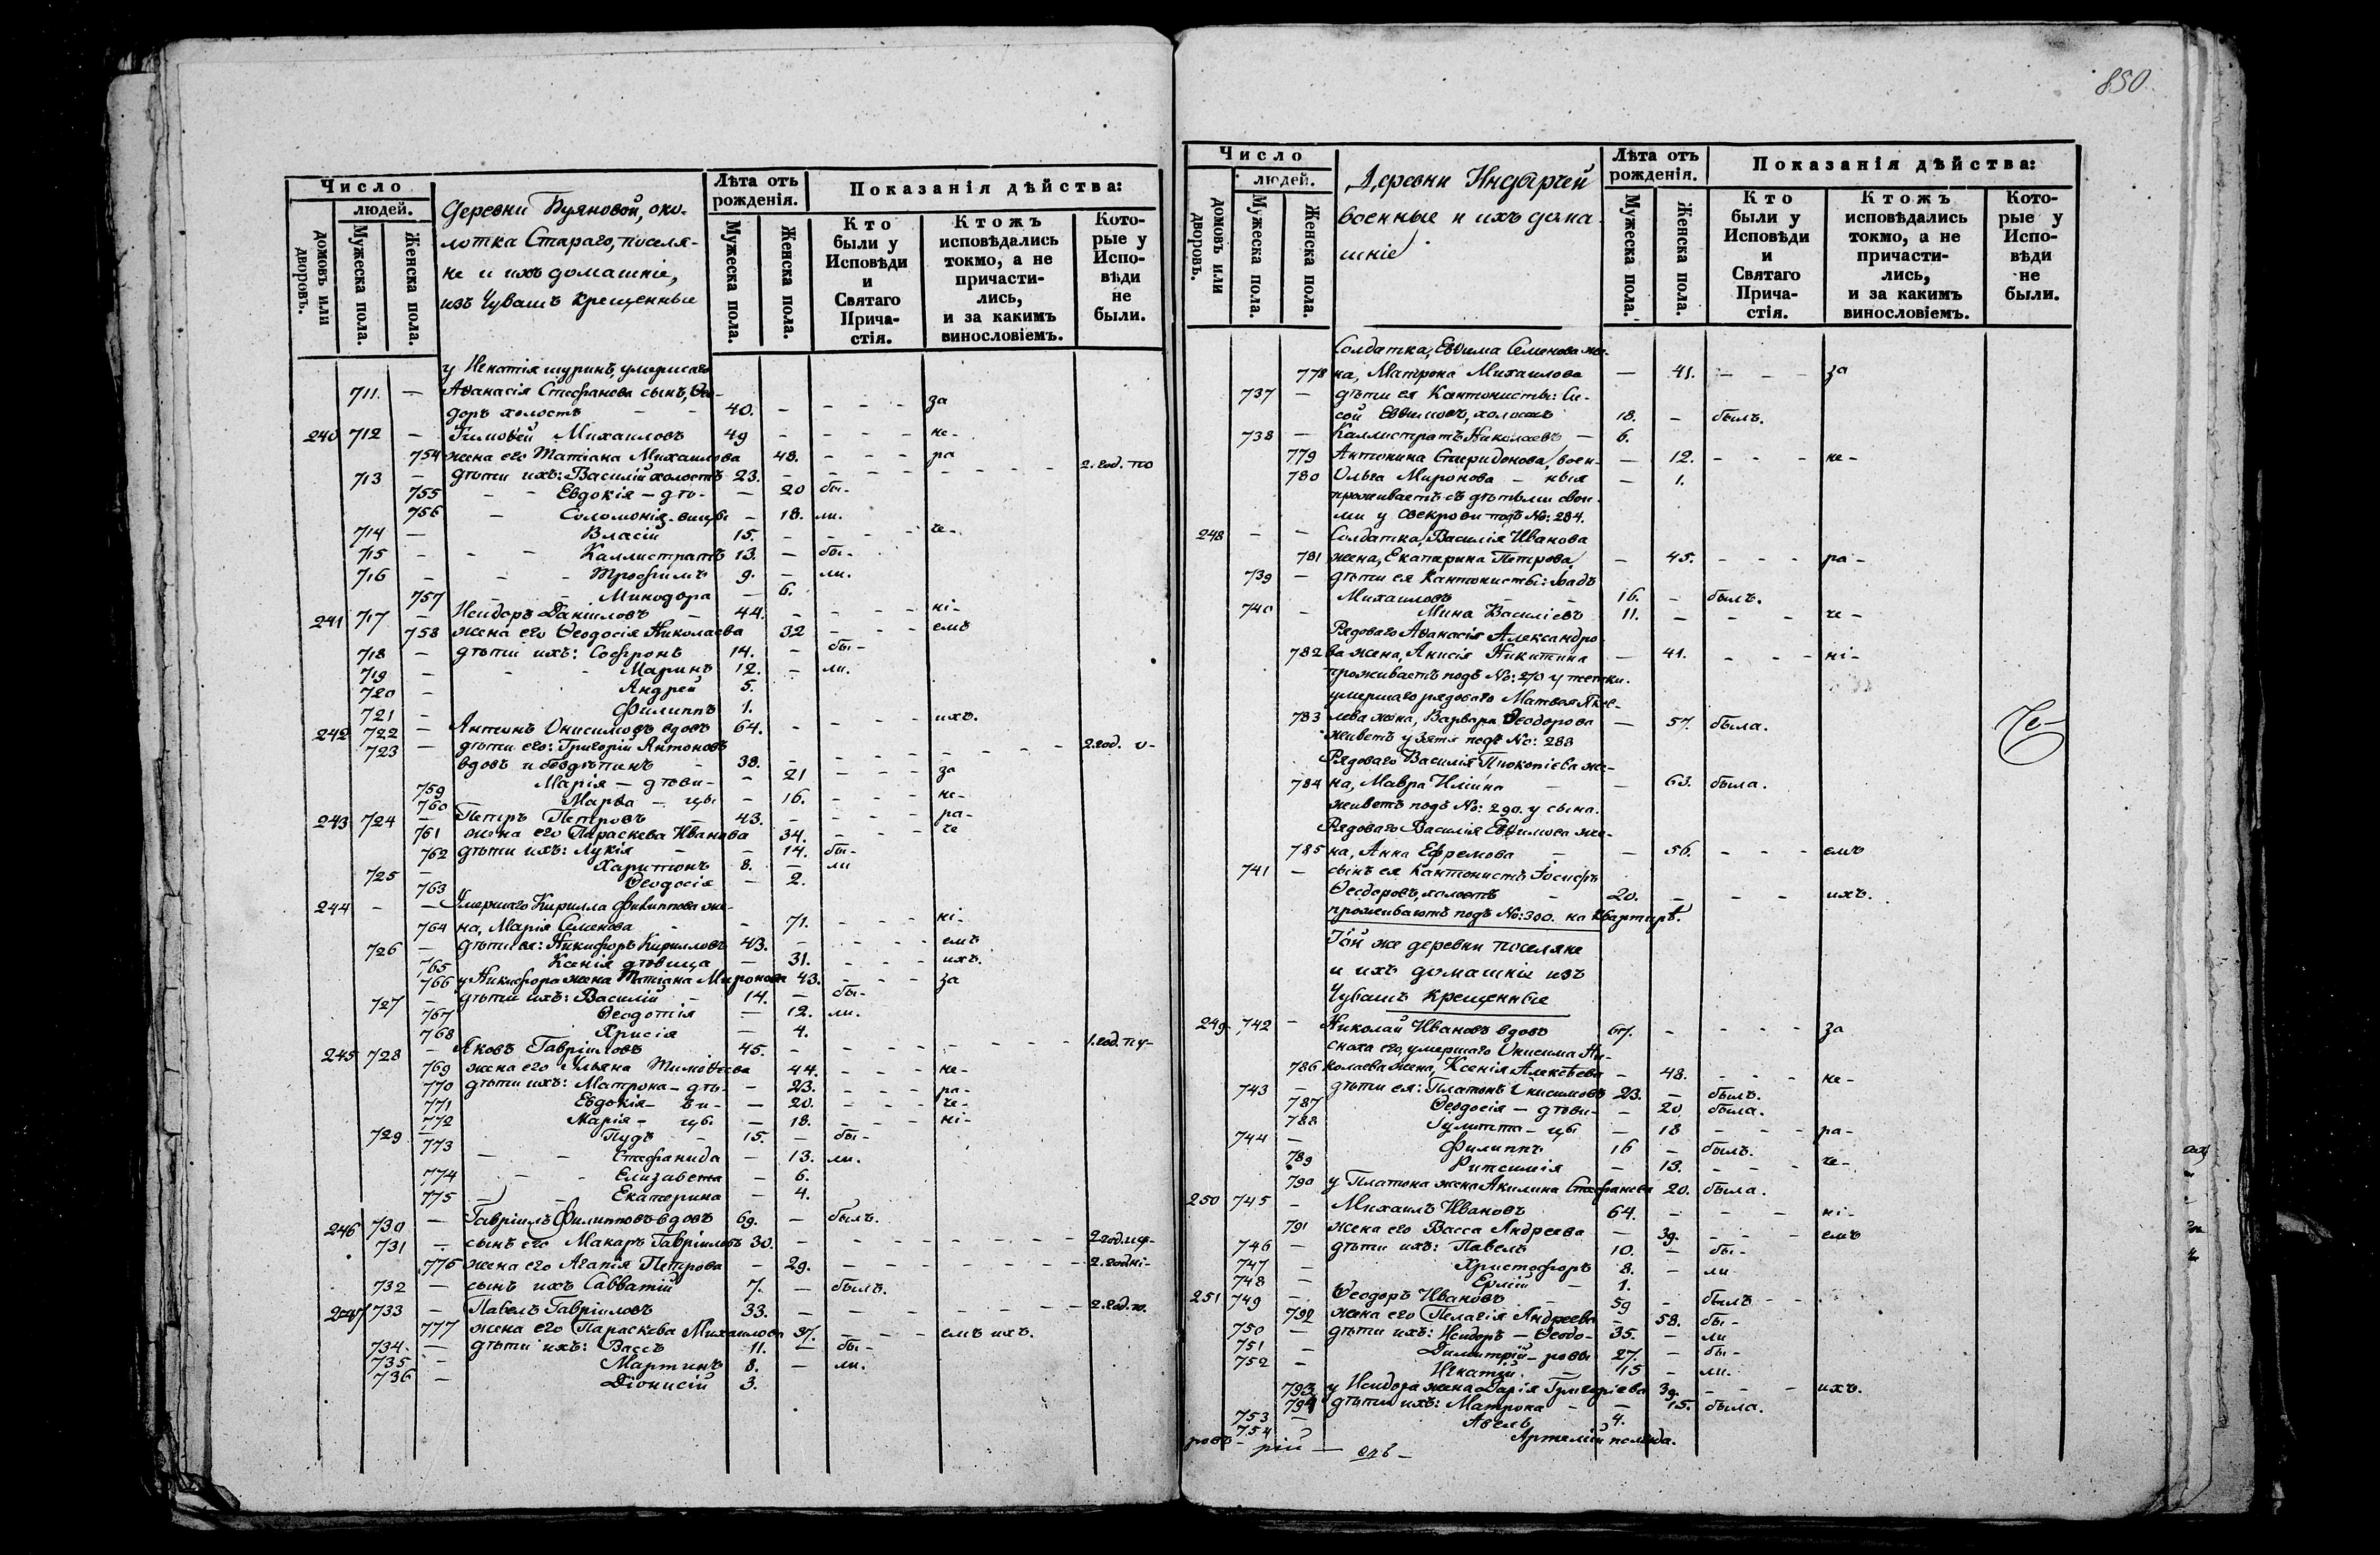 850.
Число
людей.
домовъ или дворовъ.
Мужеска пола.
Женска пола.
Деревни Буяновой, око-
лотка Стараго, поселя-
не и ихъ домашніе,
изъ Чувашъ крещенные
Лѣта отъ рожденія.
Мужеска пола.
Женска пола.
Показанія дѣйства:
Кто были у Исповѣди и Святаго Прича- стія.
Ктожъ исповѣдались токмо, а не причасти- лись, и за какимъ винословіемъ.
Кото- рые у Испо- вѣди не были.
у Игнатія шуринъ, умершаго
711. — Аѳанасія Стефанова сынъ, Ѳео-
доръ холостъ - - 40. - - - - за
240 712 — Тимоѳей Михаиловъ 49 - - - - не-
754 жена его Татіана Михаилова 48. - - - ра
713 — дѣти ихъ: Василій холостъ 23. - - - - - - - - 2. год. по
755 - - Евдокія — дѣв- — 20 бы-
756 - Соломонія - вицы — 18. ли.
714 — Власій 15. - - - - че-
715 - - - Каллистратъ 13. — бы-
716 - - - Трофимъ 9. — ли.
757 - - Минодора — 6.
241 717 — Исидоръ Даніиловъ — 44. - - - - ні-
758 жена его Ѳеодосія Николаева 32 - - - емъ
718 — дѣти ихъ: Софронъ 14. - бы-
719 - - - Маринъ 12. — ли.
720 - Андрей 5.
721 - Филиппъ 1.
242 722 — Антонъ Онисимовъ вдовъ 64. - - - - ихъ.
723 — дѣти его: Григорій Антоновъ
вдовъ и бездѣтенъ - 38. - - - - - - - 2.год. о-
759 Марія — дѣви- - 21 - - - за
760 Марѳа — цы - 16. - - - не-
243 724 — Петръ Петровъ — 43. - - - - ра-
761 жена его Параскева Иванова 34. - - - че
762 дѣти ихъ: Лукія - — 14. бы-
725 — Харитонъ 8. — ли
763 Ѳеодосія — 2.
244 - — Умершаго Кирилла Филиппова же-
764 на, Марія Семенова - - 71. - - - ні-
726 — дѣти ея: Никифоръ Кирилловъ 43. - - - - емъ
765 Ксенія дѣвица — 31. - - - ихъ.
766 у Никифора жена Татіана Миронова 43. - - - за
727 — дѣти ихъ: Василій - 14. — бы-
767 Ѳеодотія — 12. ли.
768 Хрисія — 4.
245 728 — Яковъ Гавріиловъ 45. - - - - - - - - 1.год.пу-
769 жена его Ульяна Тимоѳеева 44. - - - не-
770 дѣти ихъ: Матрона — дѣ- - 23. - - - ра-
771 Евдокія — ви- — 20. - - - че-
772 Марія — цы — 18. - - - ні-
729 — Пудъ - 15. — бы-
773 - - Стефанида — 13. ли.
774 - - Елизавета — 6.
775 - - Екатерина — 4.
246 730 — Гавріилъ Филипповъ вдовъ 69. — былъ.
731 — сынъ его Макаръ Гавріиловъ 30. - - - - - - - -
776 жена его Агапія Петрова — 29. - - - - - - -
732 — сынъ ихъ Савватій 7. — былъ.
247 733 — Павелъ Гавріиловъ 33. — - - - - - - -
777 жена его Параскева Михаилова 37. - - - емъ ихъ.
734. — дѣти ихъ: Вассъ 11. — бы-
735 - Мартинъ 8. — ли.
736 — Діонисій 3.
Число
людей.
домовъ или дворовъ.
Мужеска пола.
Женска пола.
Деревни Индырчей
военные и ихъ дома-
шніе
Лѣта отъ рожденія.
Мужеска пола.
Женска пола.
Показанія дѣйства:
Кто были у Исповѣди и Святаго Прича- стія.
Ктожъ исповѣдались токмо, а не причасти- лись, и за какимъ винословіемъ.
Кото- рые у Испо- вѣди не были.
Солдатка, Евѳима Семенова же-
778 на, Матрона Михаилова — 41. - - - за
737 — дѣти ея Кантонисты: Си-
сой Евѳимовъ, холостъ 18. - былъ.
738 — Каллистратъ Николаевъ — 6.
779 Антонина Спиридонова, воен- — 12. - - - не-
780 Ольга Миронова — ныя — 1.
проживаетъ съ дѣтьми свои-
ми у свекрови подъ №: 284.
248 - - Солдатка, Василія Иванова
781 жена, Екатерина Петрова — 45. - - - ра-
739 — дѣти ея Кантонисты:
Михаиловъ 16. - былъ.
740 — Мина Василіевъ 11. - - - че-
Рядоваго Аѳанасія Александро-
782 ва жена, Анисія Никитина — 41. - - - ні-
проживаетъ подъ №: 270 у тетки.
умершаго рядоваго Матвея Яков-
783 лева жена, Варвара Ѳеодорова — 57. была.
живетъ у зятя подъ №: 288
Рядоваго Василія Прокопіева же-
784 на, Мавра Иліина - — 63. была.
живетъ подъ №: 290. у сына.
Рядоваго Василія Евѳимова же-
785 на, Анна Ефремова - — 56. - - - емъ
741 — сынъ ея Кантонистъ Іосифъ
Ѳеодоровъ, холостъ - 20. - - - ихъ.
проживаютъ подъ №: 300. на квартирѣ.
Той же деревни поселяне
и ихъ домашніе изъ
Чувашъ крещенные
249 742 — Николай Ивановъ вдовъ 67. - - - - за
сноха его, умершаго Онисима Ни-
786 колаева жена, Ксенія Алексѣева — 48. - - - не-
743 — дѣти ея: Платонъ Онисимовъ 23. — былъ.
787 Ѳеодосія — дѣви- — 20 была.
788 Іулитта — цы — 18 - - - ра-
744 — Филиппъ 16 — былъ.
789 Рипсимія — 13. - - - че-
790 у Платона жена Акилина Стефанова 20. была.
250 745 — Михаилъ Ивановъ 64. - - - - ні-
791 жена его Васса Андреева — 39. - - - емъ
746 — дѣти ихъ: Павелъ 10. — бы-
747 — Христофоръ 8. — ли
748 — Ермій - 1.
251 749 — Ѳеодоръ Ивановъ - 59 - былъ
792 жена его Пелагія Андреева — 58. бы-
750 — дѣти ихъ: Исидоръ — Ѳеодо- 35. — ли
751 — Димитрій — ровы 27. — бы-
752 — Игнатій. - 15 — ли.
793 у Исидора жена Дарія Григоріева 39. - - - ихъ.
794 дѣти ихъ: Матрона - — 15. была.
753 — Авель 4.
754 Артемій полгода.